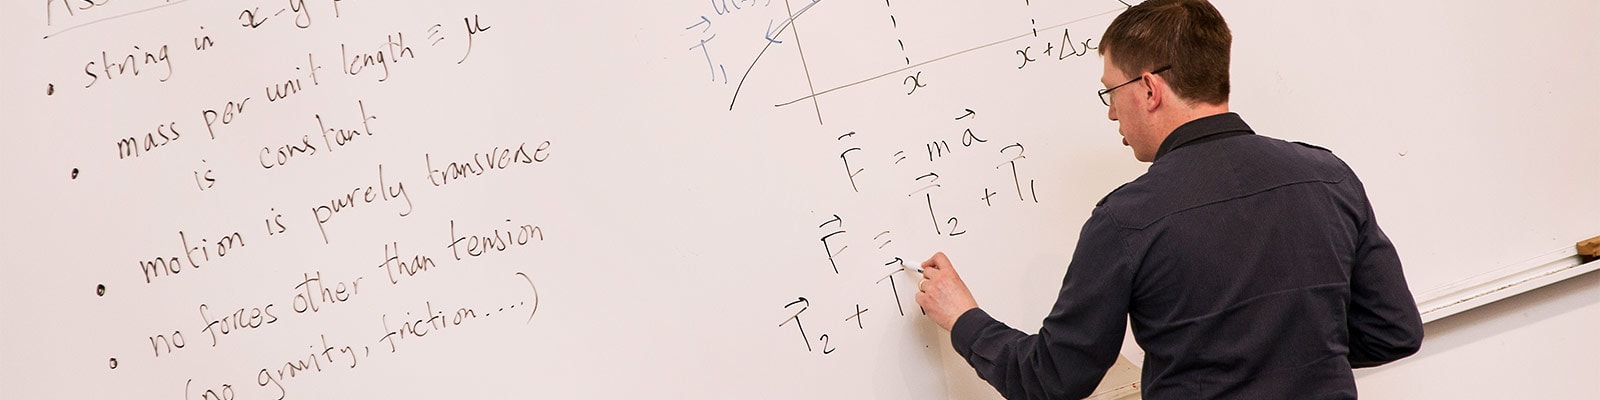 • string in x-y
• mass per unit length ≡ μ
is constant
• motion is purely transverse
• no forces other than tension
(no gravity, friction....)
T⃗₁
x
x + Δx
F⃗ = m a⃗
F⃗ = T⃗₂ + T⃗₁
T⃗₂ + T⃗₁